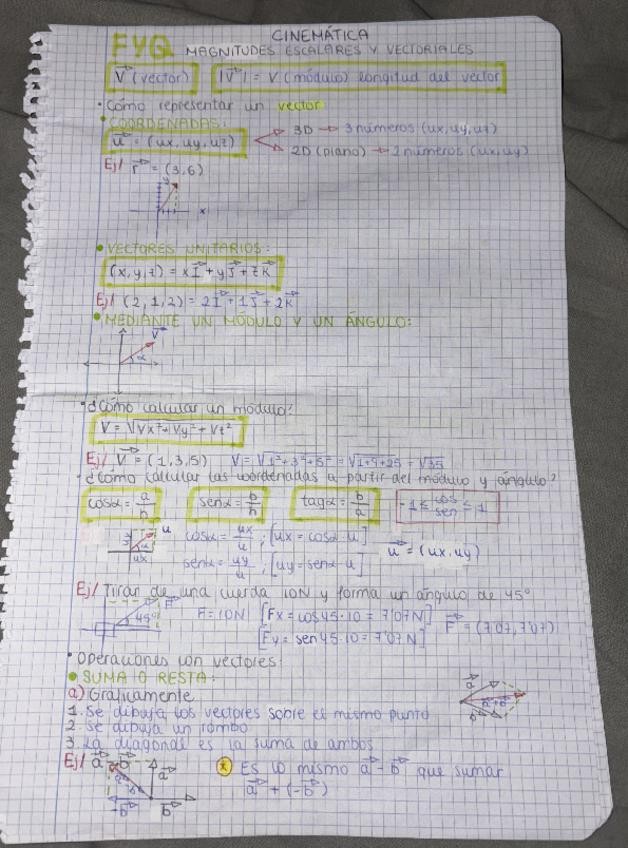 CINEMÁTICA
FYQ MAGNITUDES ESCALARES Y VECTORIALES
V⃗ (vector) |V⃗| = V (módulo) longitud del vector
• Cómo representar un vector
• COORDENADAS:
u⃗ = (ux, uy, uz) → 3D → 3 números (ux, uy, uz)
→ 2D (plano) → 2 números (ux, uy)
Ej/ r⃗ = (3,6)
y
x
• VECTORES UNITARIOS:
(x, y, z) = x i⃗ + y j⃗ + z k⃗
Ej/ (2, 1, 2) = 2 i⃗ + 1 j⃗ + 2 k⃗
• MEDIANTE UN MÓDULO Y UN ÁNGULO:
V⃗
α
• ¿Cómo calcular un módulo?
V = √Vx² + Vy² + Vz²
Ej/ V⃗ = (1, 3, 5) V = √1² + 3² + 5² = √1 + 9 + 25 = √35
• ¿Cómo calcular las coordenadas a partir del módulo y ángulo?
cosα = a/h senα = b/h tagα = b/a -1 ≤ cos/sen ≤ 1
u α ux cosα = ux/u ; [ux = cosα · u]
senα = uy/u ; [uy = senα · u] u⃗ = (ux, uy)
Ej/ Tiran de una cuerda 10N y forma un ángulo de 45°
F⃗ 45° F = 10N [Fx = cos45 · 10 = 7'07N] F⃗ = (7'07, 7'07)
[Fy = sen45 · 10 = 7'07N]
• Operaciones con vectores:
• SUMA O RESTA:
a) Gráficamente
a⃗ a⃗+b⃗ b⃗
1. Se dibuja los vectores sobre el mismo punto
2. Se dibuja un rombo
3. La diagonal es la suma de ambos
Ej/ a⃗ - b⃗ a⃗ -b⃗ b⃗
* Es lo mismo a⃗ - b⃗ que sumar
a⃗ + (-b⃗)